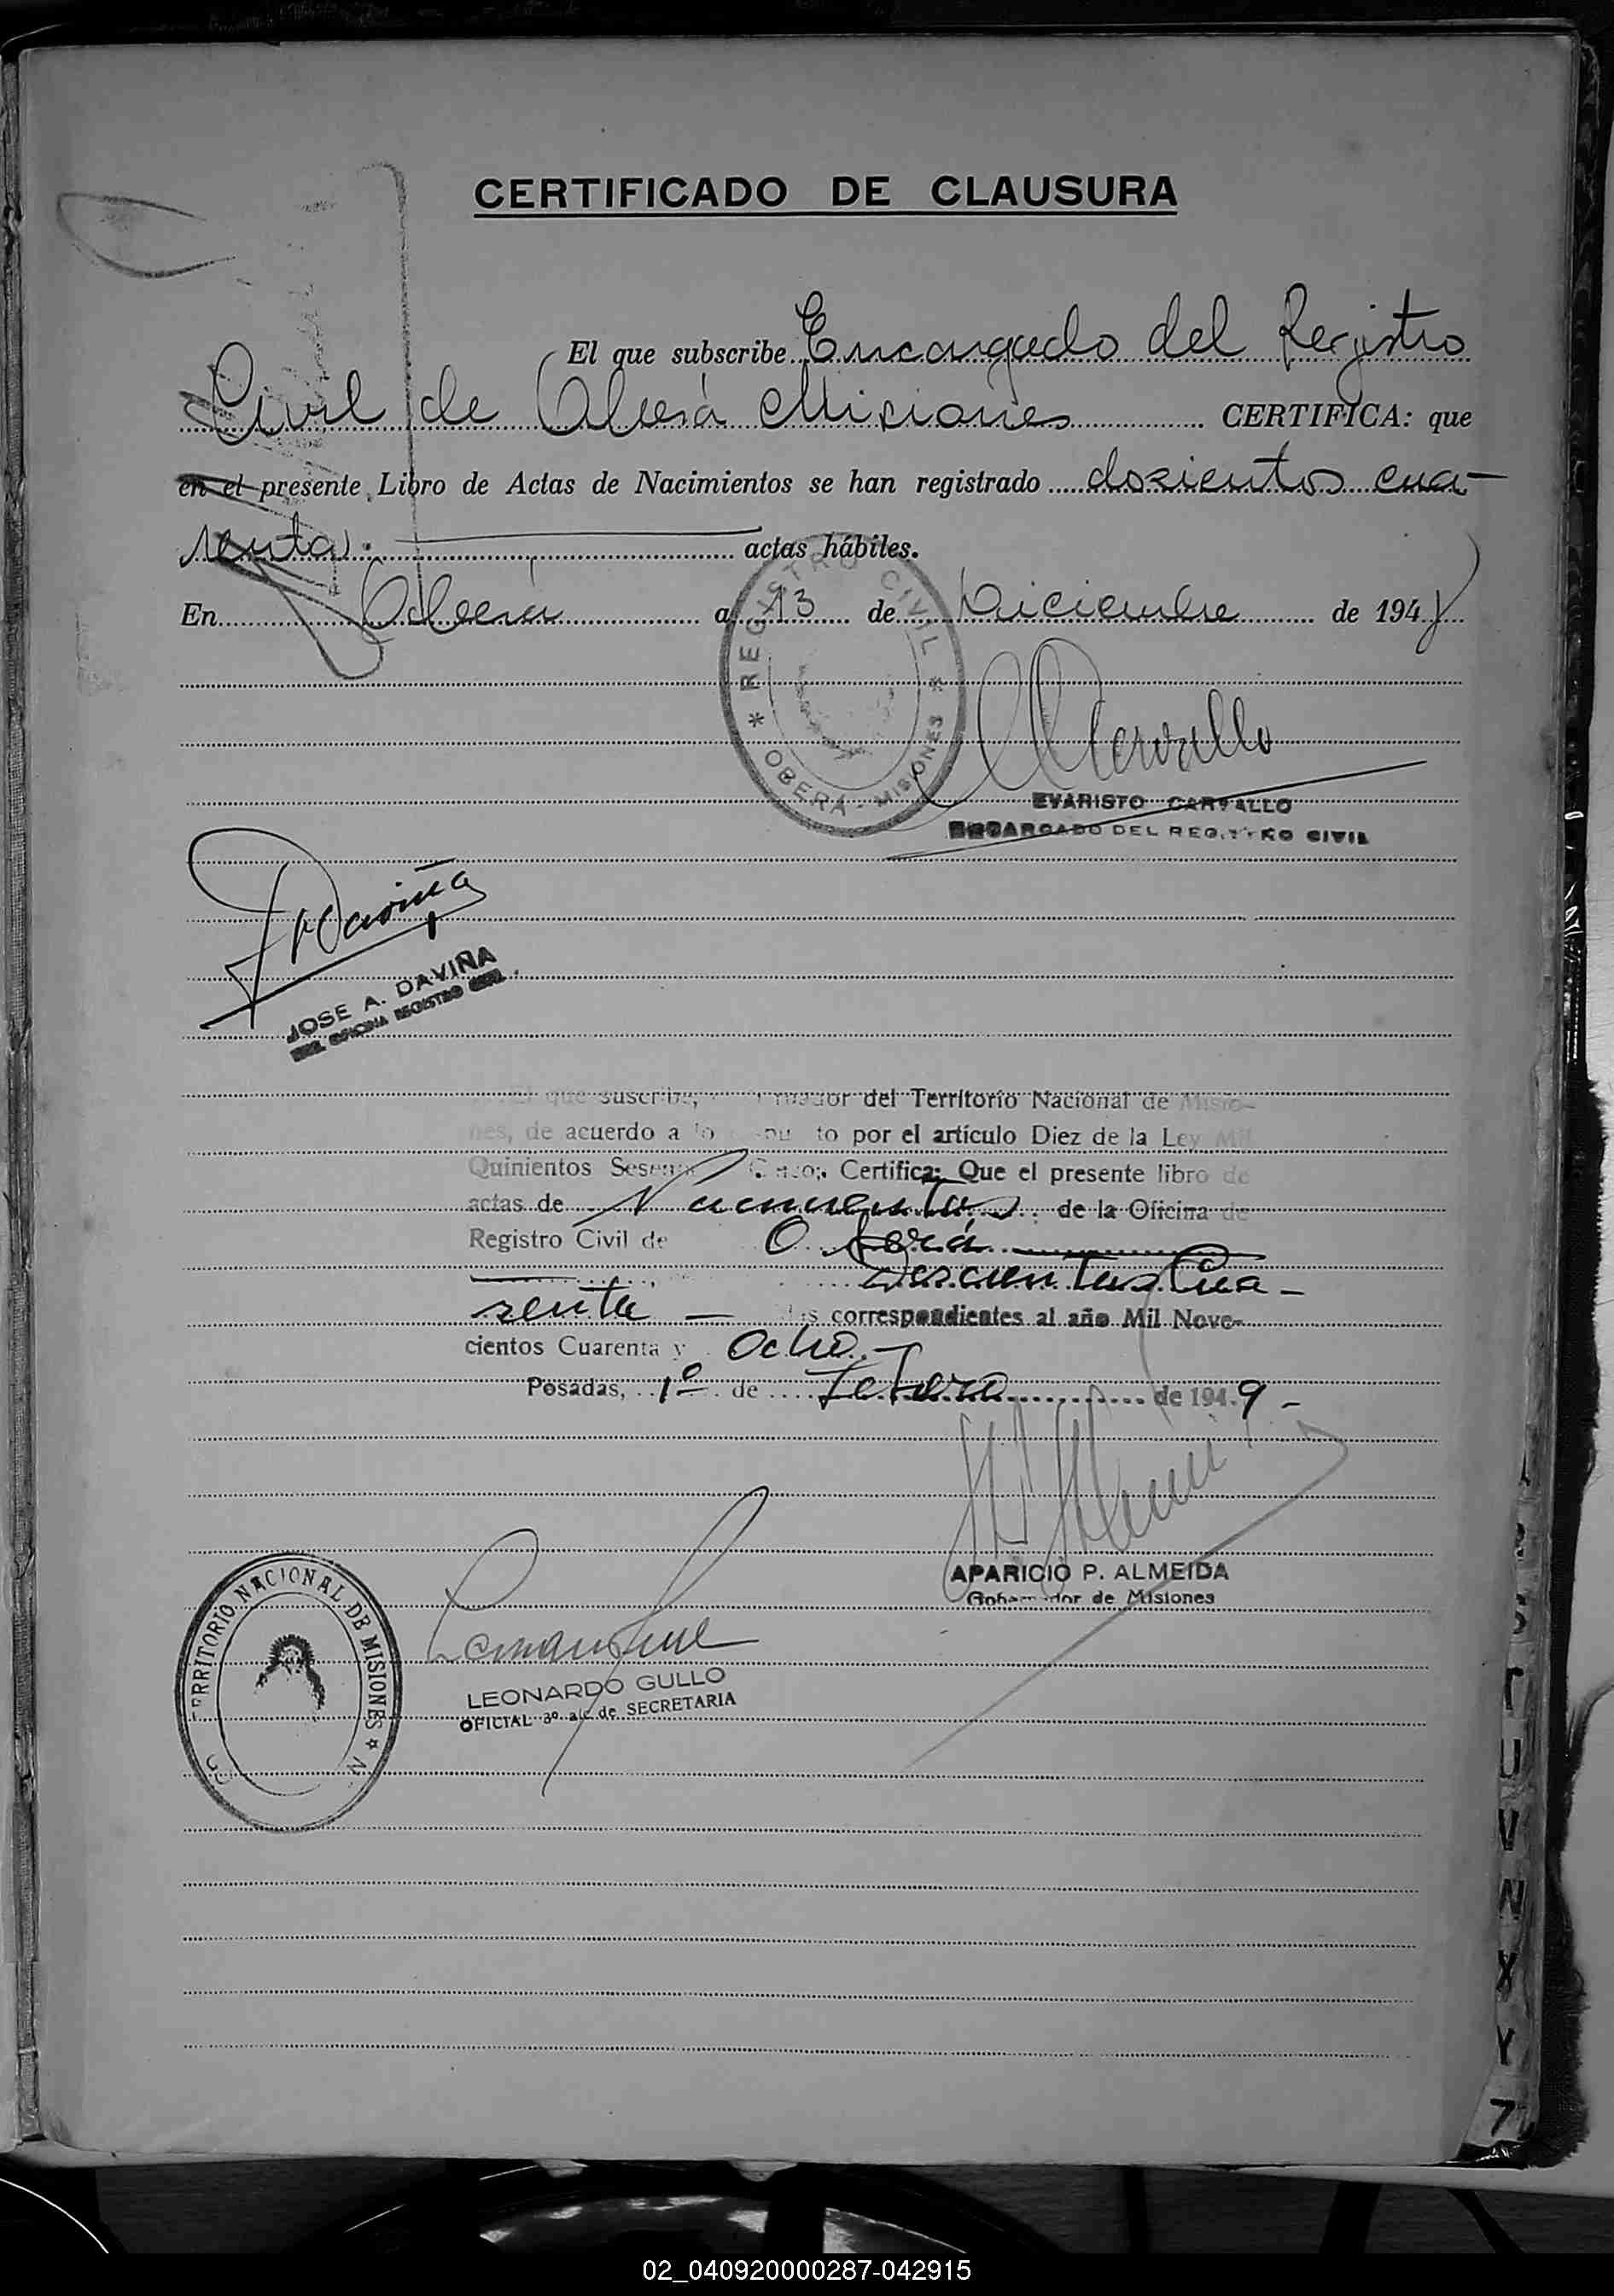 CERTIFICADO DE CLAUSURA
El que subscribe Encargado del Registro
Civil de Oberá Misiones CERTIFICA: que
en el presente Libro de Actas de Nacimientos se han registrado dosientos cua-
renta. actas hábiles.
En Oberá a 13 de Diciembre de 1948
REGISTRO CIVIL
* OBERÁ - MISIONES *
EVARISTO CARVALLO
ENCARGADO DEL REGISTRO CIVIL
JOSE A. DAVIÑA
OFICINA REGISTRO CIVIL
El que suscribe, del Territorio Nacional de Misio-
nes, de acuerdo a lo to por el artículo Diez de la Ley Mil
Quinientos Sesenta Certifica: Que el presente libro de
actas de Nacimientos de la Oficina de
Registro Civil de Oberá
Doscientas Cua-
renta — correspondientes al año Mil Nove-
cientos Cuarenta y Ocho.-
Posadas, 1º de Febrero de 1949 -
APARICIO P. ALMEIDA
Gobernador de Misiones
TERRITORIO NACIONAL DE MISIONES
LEONARDO GULLO
OFICIAL 3º a/c de SECRETARIA
T
U
V
X
Y
02_040920000287-042915